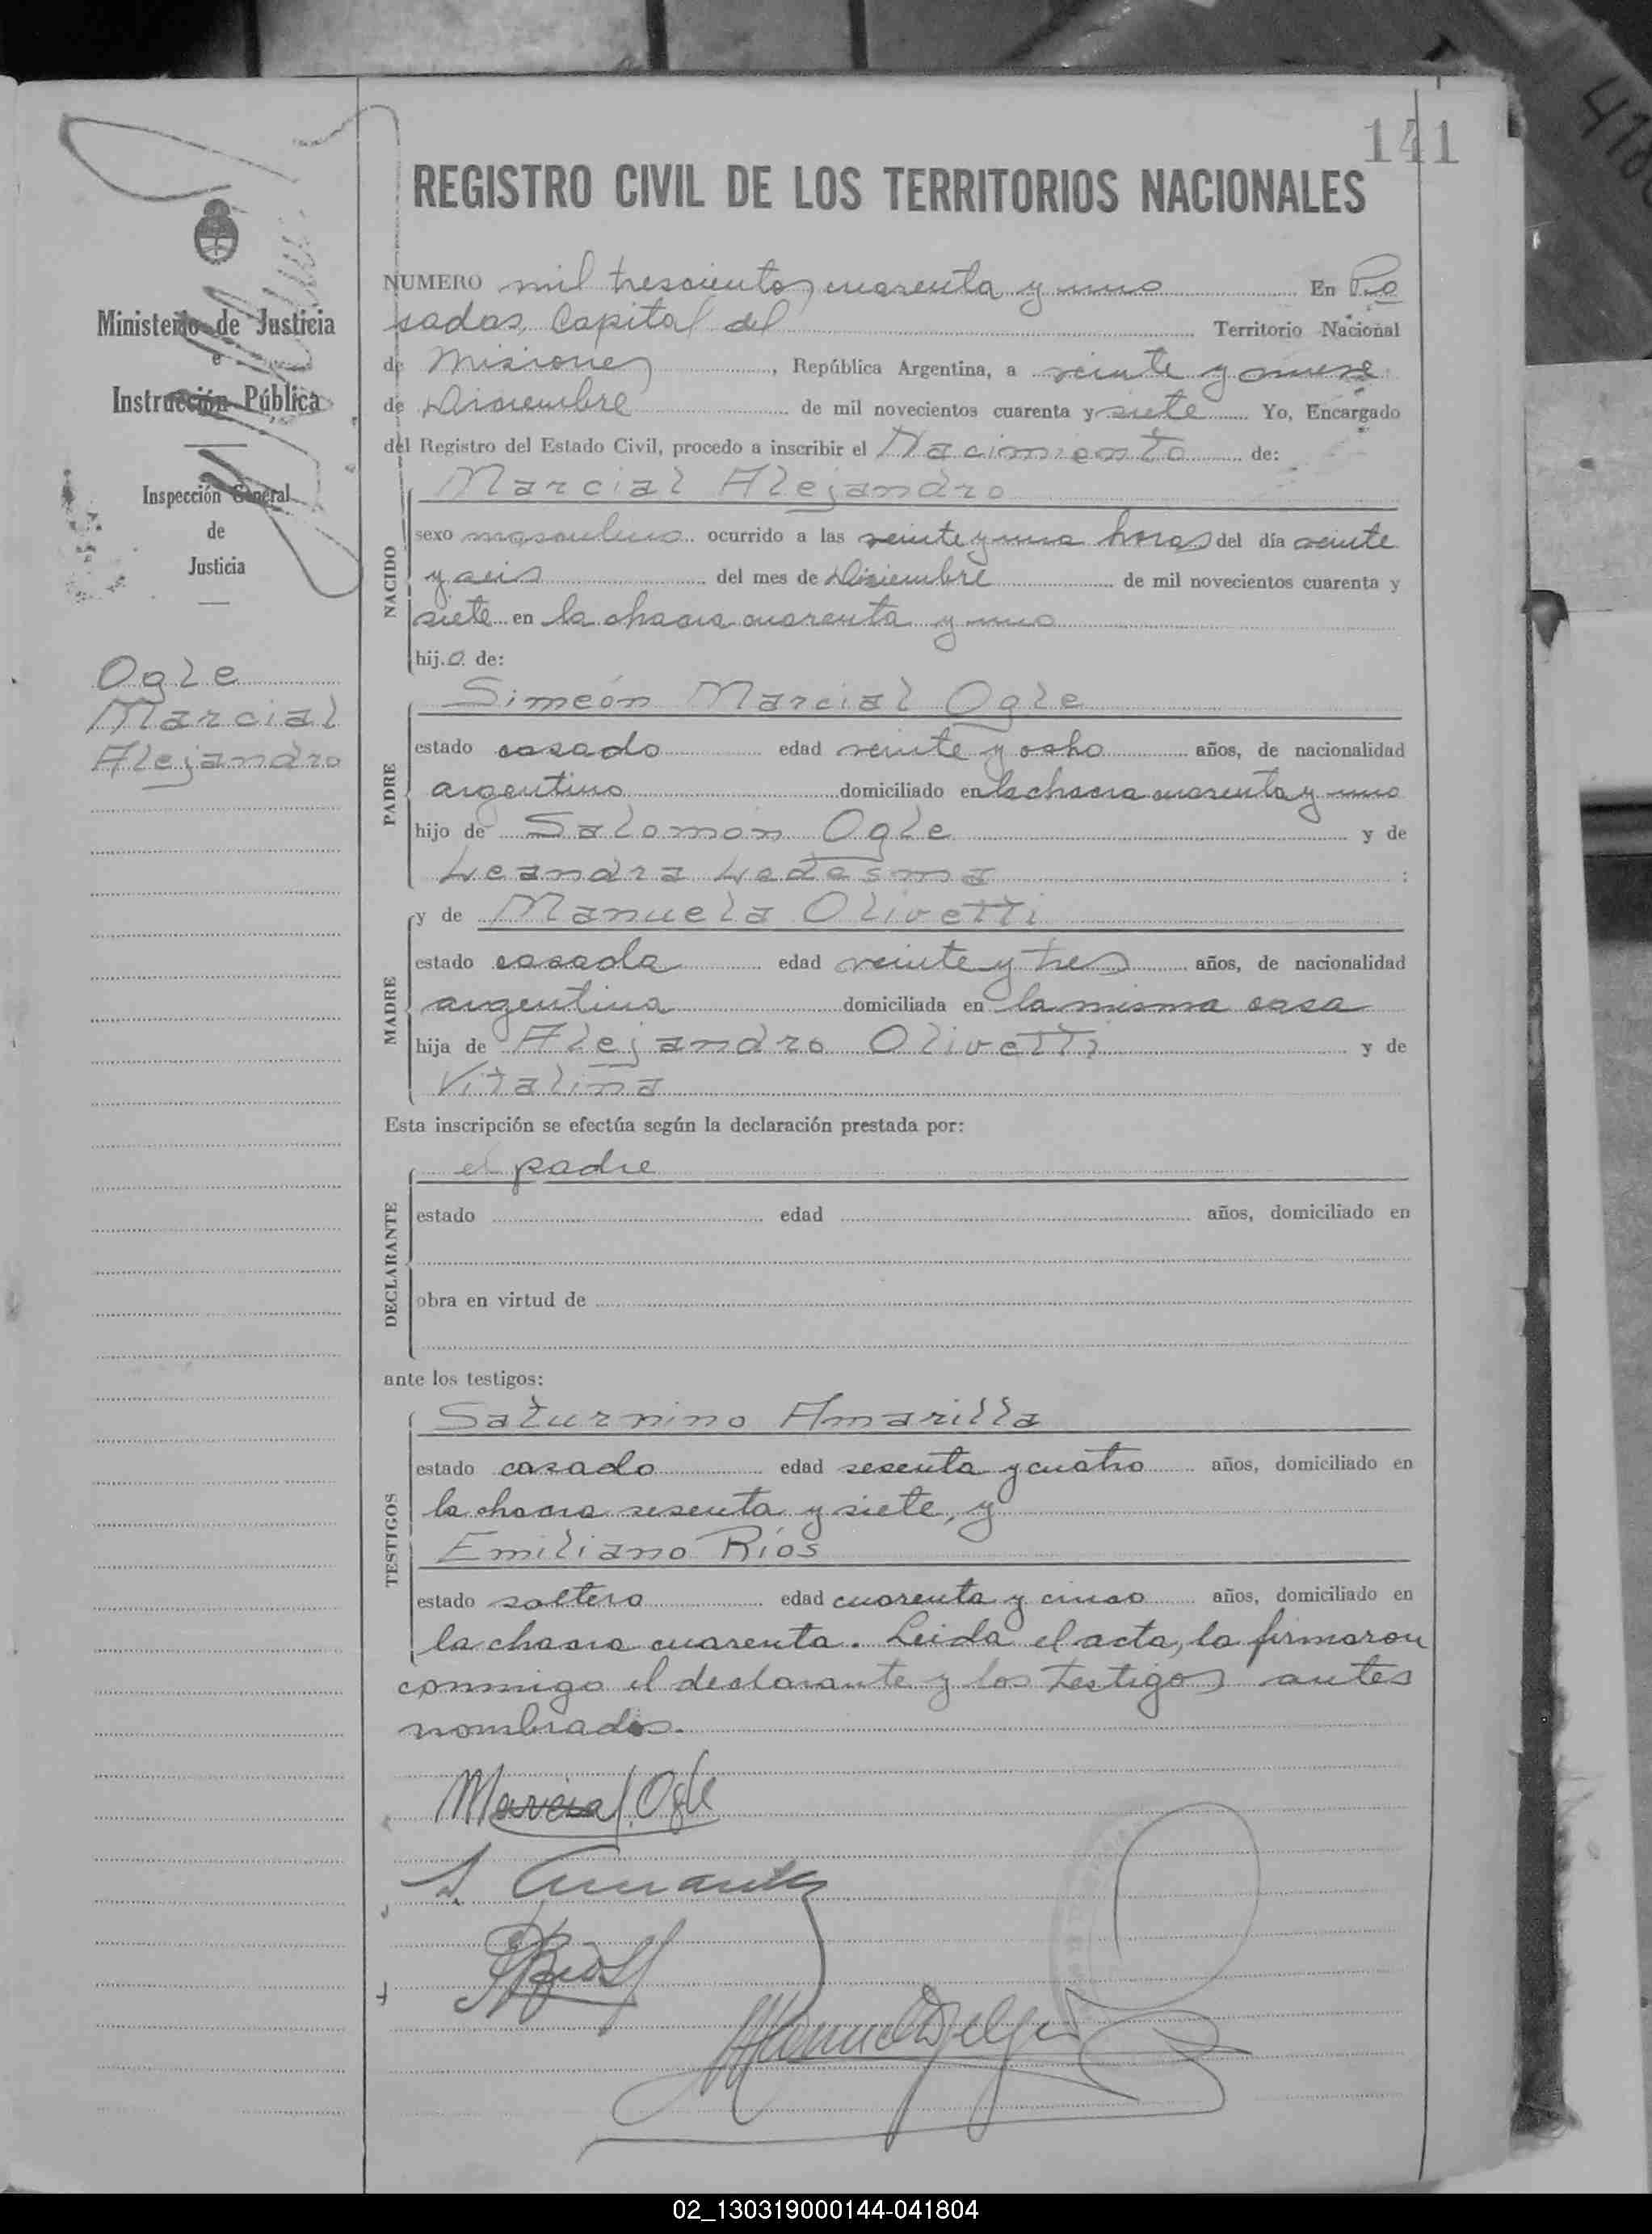 141
REGISTRO CIVIL DE LOS TERRITORIOS NACIONALES
Ministerio de Justicia
e
Instrucción Pública
Inspección General
de
Justicia
Ogle
Marcial
Alejandro
NUMERO mil trescientos cuarenta y uno En Po
sadas, Capital del Territorio Nacional
de Misiones, República Argentina, a veinte y nueve
de Diciembre de mil novecientos cuarenta y siete Yo, Encargado
del Registro del Estado Civil, procedo a inscribir el Nacimiento de:
NACIDO
Marcial Alejandro
sexo masculino ocurrido a las veinte y una horas del día veinte
y seis del mes de Diciembre de mil novecientos cuarenta y
siete en la chacra cuarenta y uno
hij.o de:
PADRE
Simeón Marcial Ogle
estado casado edad veinte y ocho años, de nacionalidad
argentino domiciliado en la chacra cuarenta y uno
hijo de Salomon Ogle y de
Leandra Ledesma :
MADRE
y de Manuela Olivetti
estado casada edad veinte y tres años, de nacionalidad
argentina domiciliada en la misma casa
hija de Alejandro Olivetti y de
Vitalina
Esta inscripción se efectúa según la declaración prestada por:
DECLARANTE
el padre
estado edad años, domiciliado en
obra en virtud de
ante los testigos:
TESTIGOS
Saturnino Amarilla
estado casado edad sesenta y cuatro años, domiciliado en
la chacra sesenta y siete, y
Emiliano Ríos
estado soltero edad cuarenta y cinco años, domiciliado en
la chacra cuarenta. Leida el acta, la firmaron
conmigo el declarante y los testigos antes
nombrados.
Marcial Ogle
S Amarilla
E Rios
02_130319000144-041804